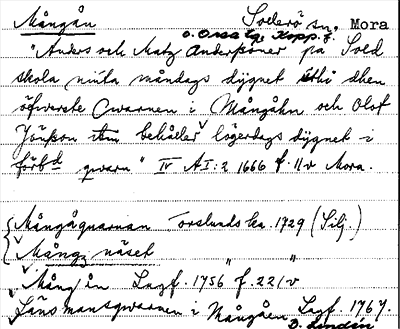 Mångån Sollerö sn, Mora
o. Orsa tg. Kopp. l.
"Anders och Matz Anderssöner på Sold
skola niuta måndags dygnet uthi dhen
öfwerste Qwarnen i Mångåhn och Olof
Jönßon itm behåller lögerdags dygnet i
förbd qwarn" IV AI:2 1666 f. 11v Mora.
Mångåquarnan Torslunds ka. 1729 (Silj.)
Mång näset " "
Mång ån Lagf. 1756 f. 221v
Länsmansqwarnen i Mångåen Lagf. 1767.
D. Lindén